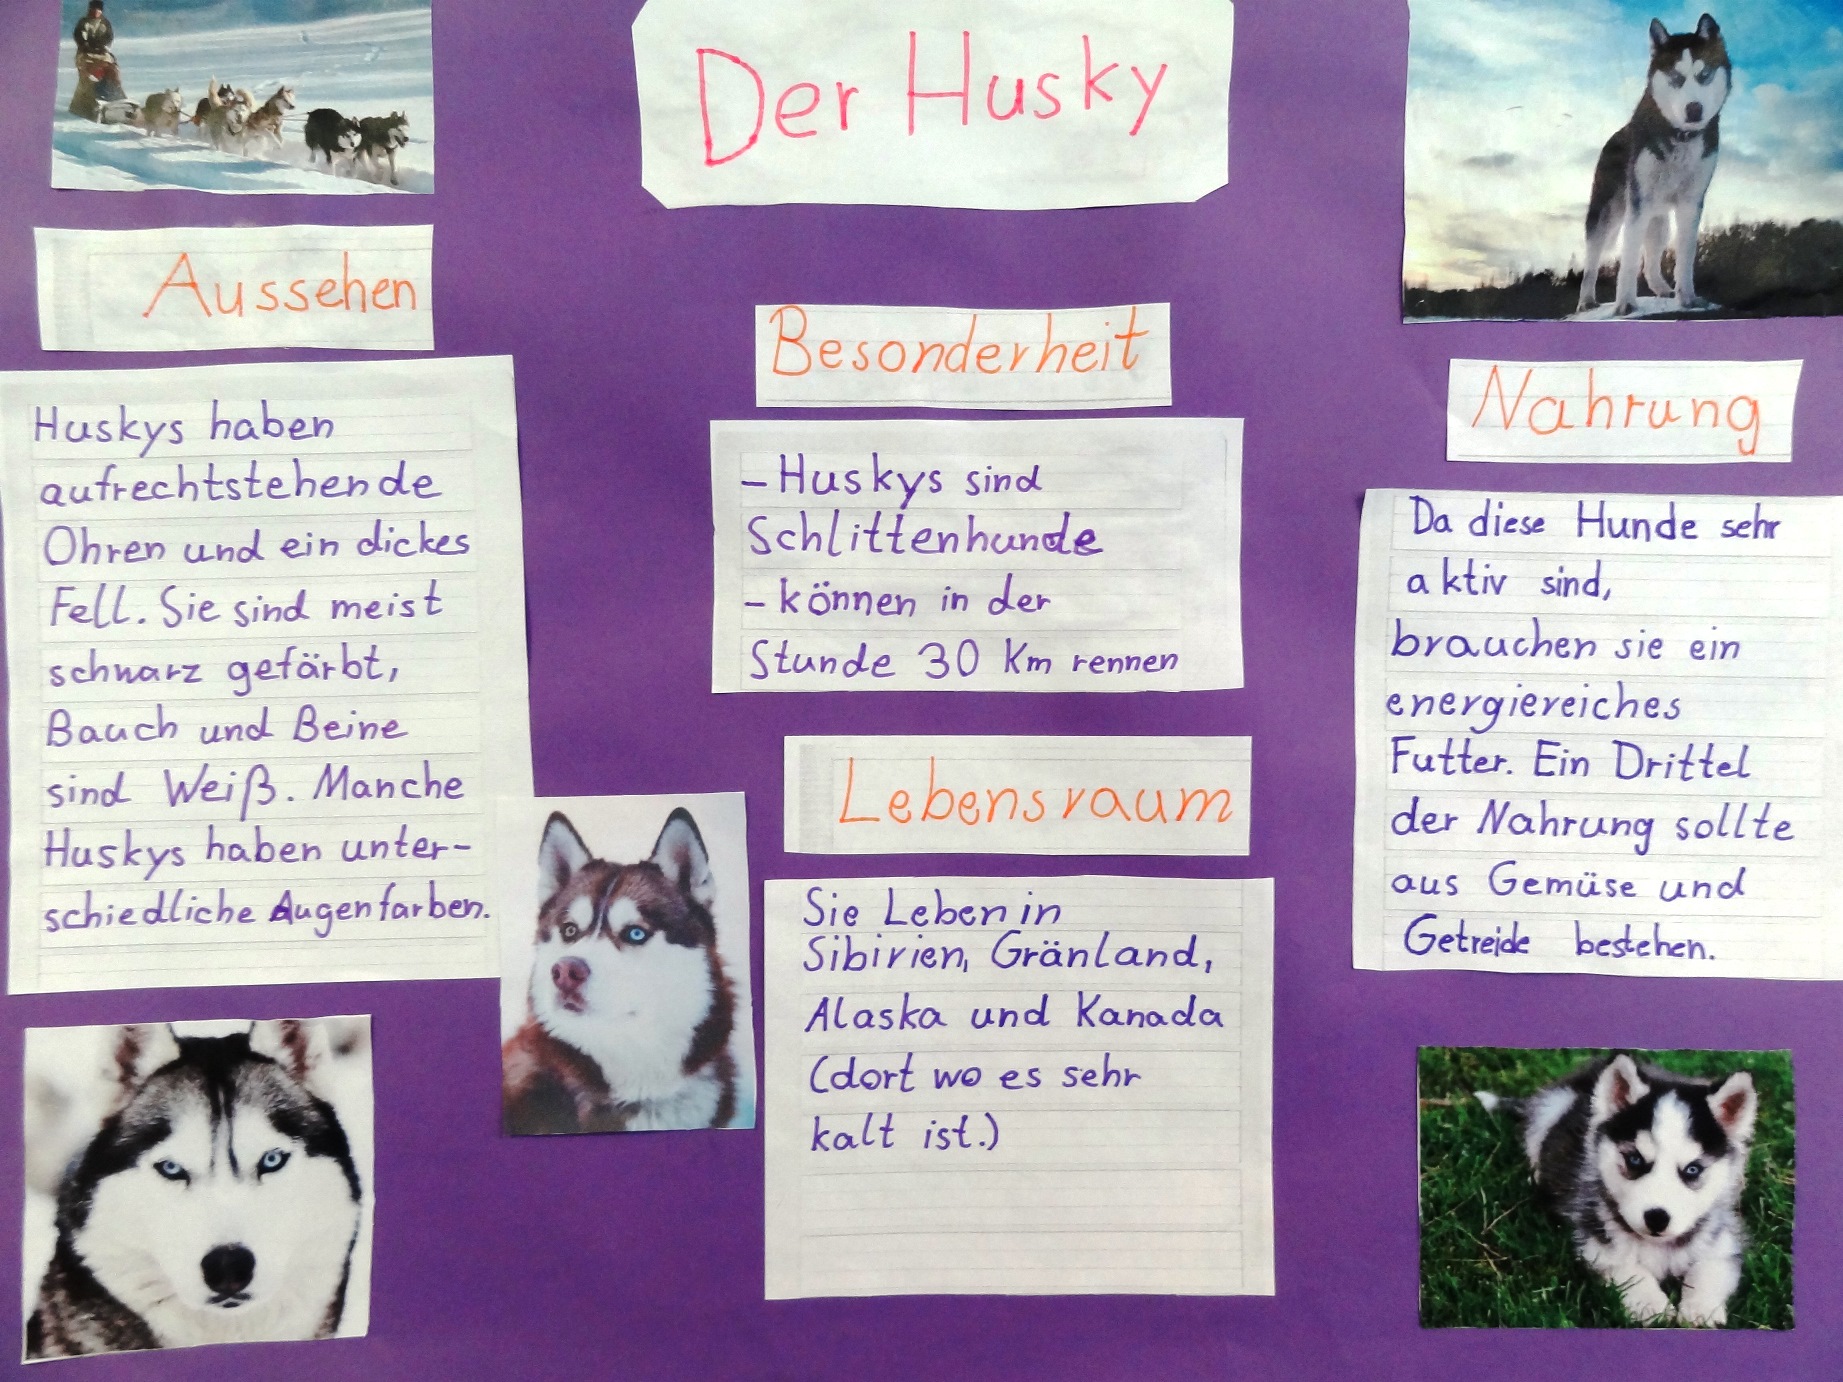 Der Husky
Aussehen
Huskys haben
aufrechtstehende
Ohren und ein dickes
Fell. Sie sind meist
schwarz gefärbt,
Bauch und Beine
sind Weiß. Manche
Huskys haben unter-
schiedliche Augenfarben.
Besonderheit
- Huskys sind
Schlittenhunde
- können in der
Stunde 30 Km rennen
Lebensraum
Sie Leben in
Sibirien, Gränland,
Alaska und Kanada
(dort wo es sehr
kalt ist.)
Nahrung
Da diese Hunde sehr
aktiv sind,
brauchen sie ein
energiereiches
Futter. Ein Drittel
der Nahrung sollte
aus Gemüse und
Getreide bestehen.